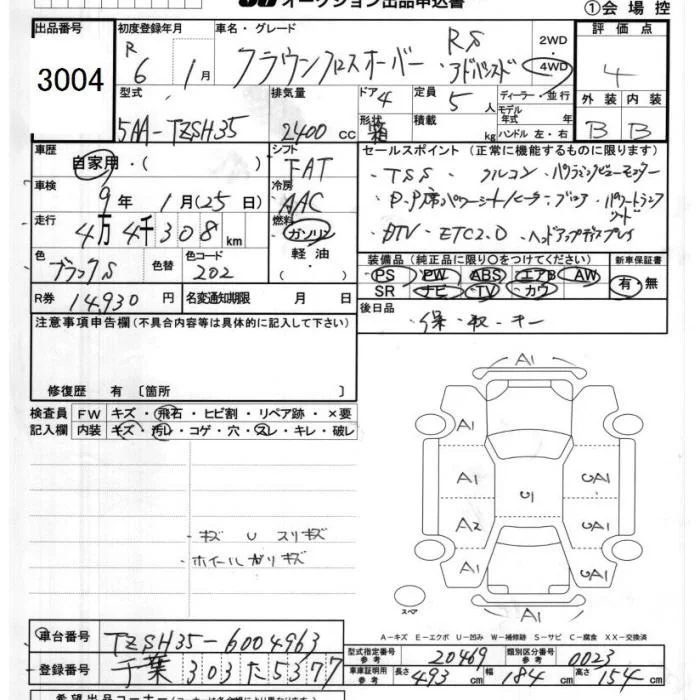 オークション出品申込書
①会場控
出品番号 初度登録年月 車名・グレード 評価点
3004
R 6 1月 クラウンクロスオーバー RS・アドバンスド 2WD・4WD 4
型式 排気量 ドア 4 定員 5人 ディーラー・並行 外装 内装
モデル年式 年
5AA-TZSH35 2400cc 形状 箱 積載 kg ハンドル 左・右 B B
車歴 シフト セールスポイント(正常に機能するものに限ります)
自家用・( ) FAT ・TSS ・パノラミックビューモニター
車検 冷房
9年 1月(25日) AAC ・D.P席パワーシート/ヒーター
走行 燃料
4万4千308km ガソリン・軽油・( ) ・DTV ・ETC2.0 ・ヘッドアップディスプレイ
色 色替 色コード 装備品(純正品に限り○をつけてください) 新車保証書
ブラックS 202 PS PW ABS エアB AW 有・無
SR ナビ TV カワ
R券 14,930円 名変通知期限 月 日 後日品
注意事項申告欄(不具合内容等は具体的に記入して下さい) ・保・取・キー
修復歴 有 〔箇所 〕
検査員 FW キズ・飛石・ヒビ割・リペア跡・×要
記入欄 内装 キズ・汚レ・コゲ・穴・スレ・キレ・破レ
A1
A1
A1 UA1
U
A2 UA1
A1 UA1
・キズ U スリキズ
・ホイールガリキズ
スペア
A1
A-キズ E-エクボ U-凹み W-補修跡 S-サビ C-腐食 XX-交換済
車台番号 TZSH35-6004963
型式指定番号 参考 20469 類別区分番号 参考 0023
登録番号 千葉 303 た 5377
車庫証明用 参考 長さ 493cm 幅 184cm 高さ 154cm
希望出品コーナー